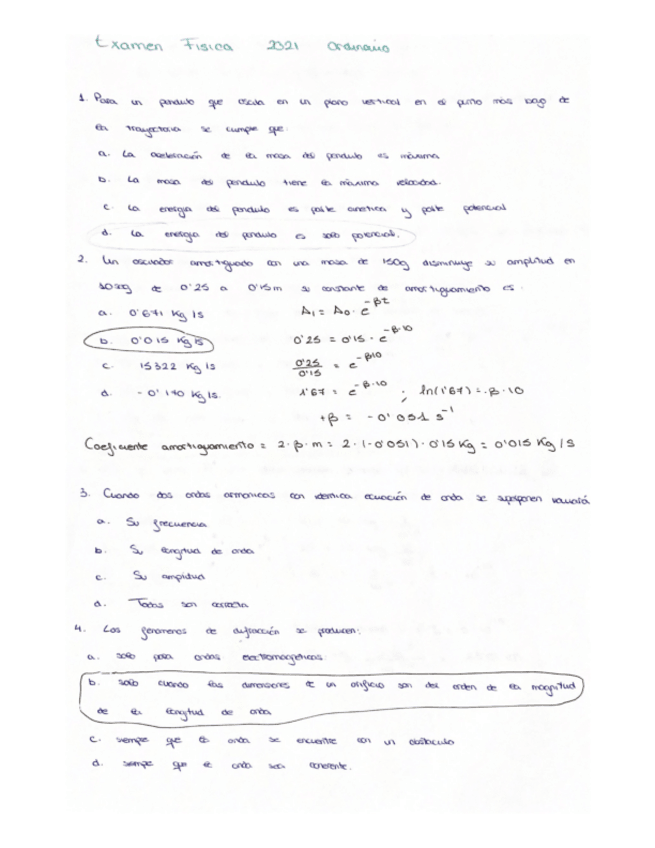 Examen Fisica 2021 Ordinario
1. Para un pendulo que oscila en un plano vertical en el punto más bajo de
la trayectoria se cumple que:
a. La aceleración de la masa del pendulo es máxima
b. La masa del pendulo tiene la máxima velocidad.
c. La energia del pendulo es parte cinetica y parte potencial
d. La energia del pendulo es solo potencial.
2. Un oscilador amortiguado con una masa de 150g disminuye su amplitud en
10seg de 0'25 a 0'15m su constante de amortiguamiento es:
a. 0'671 Kg/s
A₁ = A₀ · e^-βt
b. 0'015 Kg/s
0'25 = 0'15 · e^-β·10
c. 15322 Kg/s
0'25/0'15 = e^-β10
d. -0'170 Kg/s.
1'67 = e^-β·10 ; ln(1'67) = -β·10
+β = -0'051 s⁻¹
Coeficiente amortiguamiento = 2·β·m = 2·(-0'051)·0'15 Kg = 0'015 Kg/s
3. Cuando dos ondas armonicas con identica ecuación de onda se superponen variará
a. Su frecuencia
b. Su longitud de onda
c. Su amplitud
d. Todas son correcta
4. Los fenomenos de difracción se producen:
a. solo para ondas electromagneticas.
b. solo cuando las dimensiones de un orificio son del orden de la magnitud
de la longitud de onda
c. siempre que la onda se encuentre con un obstaculo
d. siempre que la onda sea coherente.